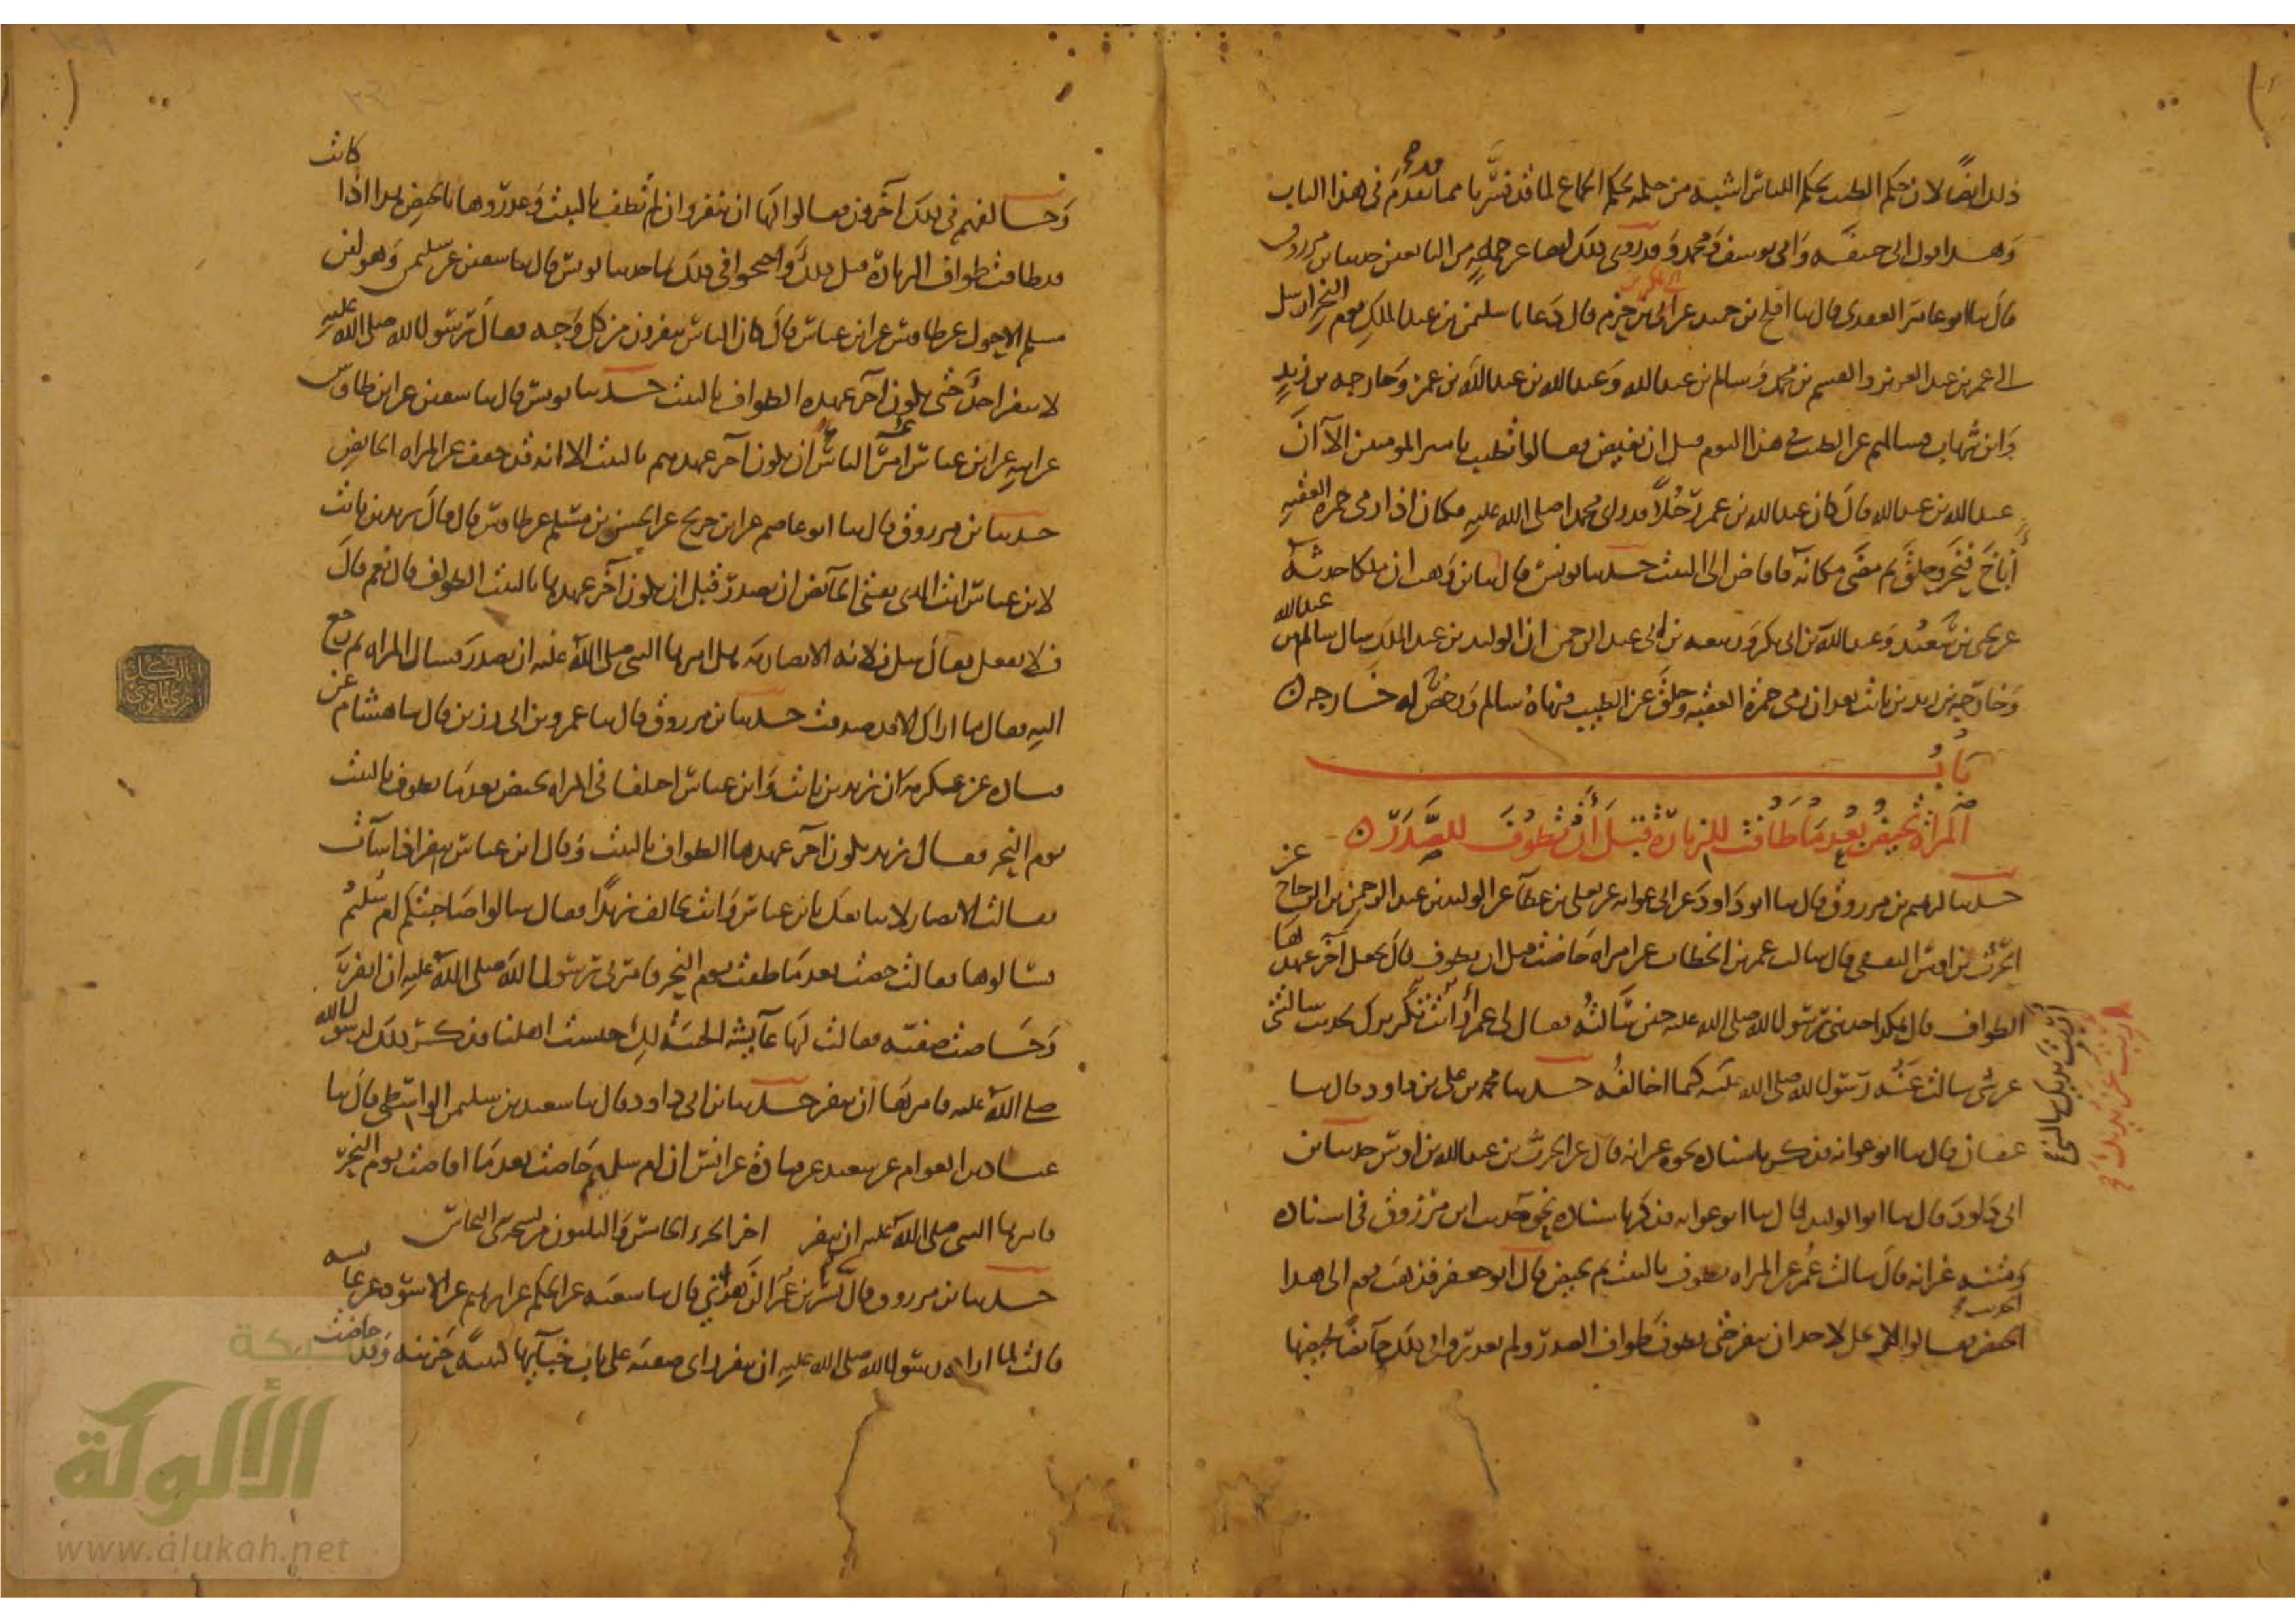 ذلك ايضًا لان حكم الطيب بحكم اللباس اشبه من حكمه بحكم الجماع لما قد فسرنا مما تقدم في هذا الباب
وهذا قول ابي حنيفه وابي يوسف ومحمد وقد روى ذلك ايضا عن جماعه من التابعين حدثنا بن مرزوق
قال ثنا ابو عامر العقدى قال ثنا افلح بن حميد عن ابي بكر بن حزم قال دعانا سليمن بن عبد الملك يوم النحر ارسل
الى عمر بن عبد العزيز والقسم بن محمد وسالم بن عبد الله وعبد الله بن عبد الله بن عمر وخارجه بن زيد
وابن شهاب فسالهم عن الطيب في هذا اليوم قبل ان نفيض فقالوا تطيب يا امير المومنين الا ان
عبد الله بن عبد الله قال كان عبد الله بن عمر رجُلًا قد راى محمدا صلى الله عليه فكان اذا رمى جمره العقبه
أناخ فنحر وحلق ثم مضى مكانه فافاض الى البيت حدثنا يونس قال ثنا بن وهب ان ملكا حدثه
عن يحيى بن سعيد وعبد الله بن ابي بكر وربيعه بن ابي عبد الرحمن ان الوليد بن عبد الملك سال سالم بن عبد الله
وخارجه بن زيد بن ثابت بعد ان رمى جمرة العقبه وحلق عن الطيب فنهاه سالم ورخص له خارجه
بابُ
المرأة تحيض بعد ما طافت للزيارة قبل أن تطوف للصدر
حدثنا ابرهيم بن مرزوق قال ثنا ابو داود عن ابي عوانه عن يعلى بن عطآ عن الوليد بن عبد الرحمن بن الزجاج عن
الحرث بن اوس الثقفى قال سالت عمر بن الخطاب عن امراه حاضت قبل ان تطوف قال تجعل آخر عهدها
الطواف قال هكذا حدثني رسول الله صلى الله عليه حين سالته فقال لي عمر أرأيت تكرير حديث سالتني
عن شى سالت عنه رسول الله صلى الله عليه كيما اخالفُه حدثنا محمد بن علي بن داود قال ثنا
عفان قال ثنا ابو عوانه فذكر باسناده نحوه غير انه قال عن الحرث بن عبد الله بن اوس حدثنا بن
ابي داود قال ثنا ابو الوليد قال ثنا ابو عوانه فذكر باسناده نحو حديث ابن مرزوق في اسناده
ومتنه غير انه قال سالت عُمر عن المراه تطوف بالبيت ثم تحيض قال ابو جعفر فذهب قوم الى هذا
الحديث فقالوا لا يحل لاحد ان ينفر حتى يطوف طواف الصدر ولم يعذروا في ذلك حآئضًا لحيضها
وخالفهم في ذلك آخرون فقالوا لها ان تنفر وان لم تطف بالبيت وعذروها بالحيض هذا اذا كانت
قد طافت طواف الزيارة قبل ذلك واحتجوا في ذلك بما حدثنا يونس قال ثنا سفين عن سليمن وهو ابن
مسلم الاحول عن طاوس عن ابن عباس قال كان الناس ينفرون من كل وجه فقال رسول الله صلى الله عليه
لا ينفر احدٌ حتى يكون آخر عهده الطواف بالبيت حدثنا يونس قال ثنا سفين عن ابن طاوس
عن ابيه عن ابن عباس أُمر الناس ان يكون آخر عهدهم بالبيت الا انه قد خفف عن المراه الحايض
حدثنا بن مرزوق قال ثنا ابو عاصم عن ابن جريج عن الحسن بن مسلم عن طاوس قال قال زيد بن ثابت
لابن عباس انت الذى تفتي الحآئض ان تصدر قبل ان يكون آخر عهدها بالبيت الطواف قال نعم قال
فلا تفعل فقال سل فلانه الانصاريه هل امرها النبي صلى الله عليه ان تصدر فسال المراه ثم رجع
اليه فقال ما اراك الا قد صدقت حدثنا بن مرزوق قال ثنا عمرو بن ابي رزين قال ثنا هشام عن
قتاده عن عكرمه ان زيد بن ثابت وابن عباس اختلفا في المراه تحيض بعد ما تطوف بالبيت
يوم النحر فقال زيد يكون آخر عهدها الطواف بالبيت وقال ابن عباس تنفر اذا شآت
فقالت الانصار لا نتابعك يا بن عباس وانت تخالف زيدًا فقال سالوا صاحبتكم ام سليم
فسالوها فقالت حضت بعد ما طفت يوم النحر فامرني رسول الله صلى الله عليه ان انفر
وحاضت صفيه فقالت لها عآيشه الخيبه لكِ حبست اهلنا فذكر ذلك لرسول الله
صلى الله عليه فامرها ان تنفر حدثنا بن ابي داود قال ثنا سعيد بن سليمن الواسطى قال ثنا
عباد بن العوام عن سعيد عن قتادة عن انس ان ام سليم حاضت بعد ما افاضت يوم النحر
فامرها النبى صلى الله عليه ان تنفر اخر الجزء الخامس والثلثون من نسخة النحاس
حدثنا بن مرزوق قال ثنا بشر بن عُمر الزهراني قال ثنا شعبه عن الحكم عن ابرهيم عن الاسود عن عايشه
قالت لما اراد رسول الله صلى الله عليه ان ينفر راى صفيه على باب خبآئها كئيبه حزينه وقد حاضت
الألوكة
www.alukah.net